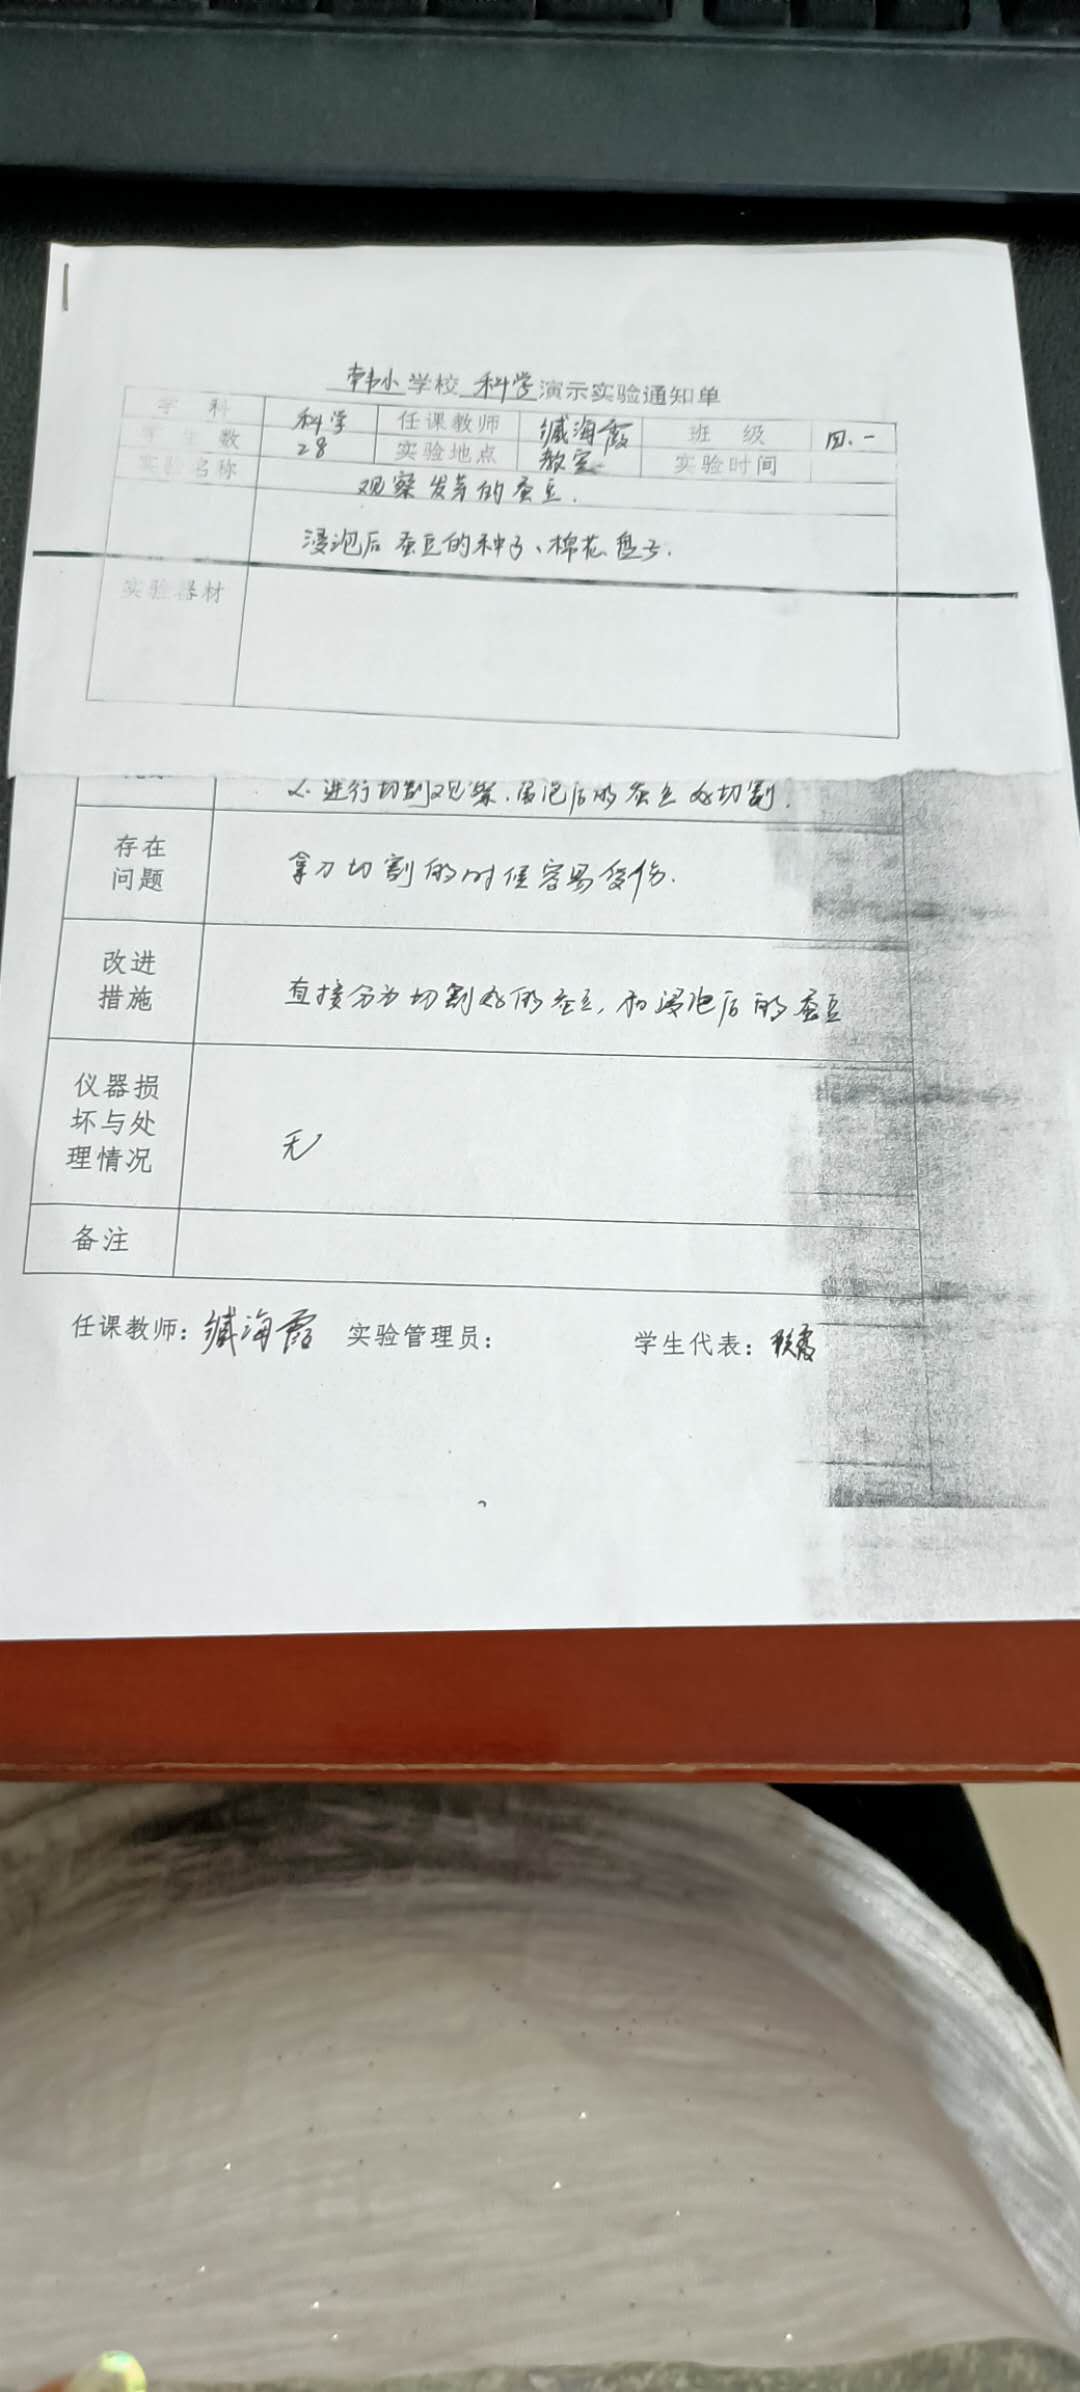 韩小学校 科学演示实验通知单
学 科 科学 任课教师 臧海霞 班 级 四.一
学 生 数 28 实验地点 教室 实验时间
实验名称 观察发芽的蚕豆.
浸泡后蚕豆的种子、棉花 盘子.
实验器材
2. 进行切割观察.浸泡后的蚕豆好切割.
存在
问题 拿刀切割的时候容易受伤.
改进
措施 直接分为切割好的蚕豆,和浸泡后的蚕豆
仪器损
坏与处
理情况 无
备注
任课教师: 臧海霞 实验管理员: 学生代表: